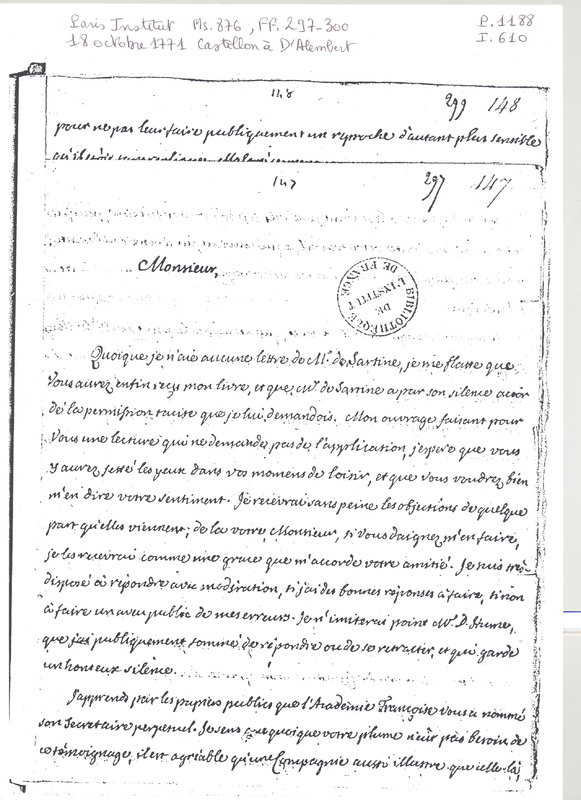 Paris Institut Ms. 876, FF. 297-300
18 octobre 1771 Castellon à D'Alembert
P. 1188
I. 610
148
299 148
pour ne pas leur faire publiquement un reproche d'autant plus sensible
147
297 147
Monsieur,
BIBLIOTHEQUE DE L'INSTITUT DE FRANCE
Quoique je n'aie aucune lettre de Mr. de Sartine, je me flatte que
vous aurez enfin reçu mon livre, et que Mr. de Sartine a par son silence accor-
dé la permission tacite que je lui demandois. Mon ouvrage faisant pour
vous une lecture qui ne demande pas de l'application, j'espere que vous
y aurez jetté les yeux dans vos momens de loisir, et que vous voudrez bien
m'en dire votre sentiment. Je recevrai sans peine les objections de quelque
part qu'elles viennent; de la votre Monsieur, si vous daignez m'en faire,
je les recevrai comme une grace que m'accorde votre amitié. Je suis très-
disposé à répondre avec modération, si j'ai des bonnes réponses à faire, sinon
à faire un aveu public de mes erreurs. Je n'imiterai point Mr. D. Hume,
que j'ai publiquement sommé de répondre ou de se retracter, et qui garde
un honteux silence.
J'apprends par les papiers publics que l'Academie Françoise vous a nommé
son Secretaire perpetuel. Je sens que quoique votre plume n'eût pas besoin de
ce témoignage, il est agréable qu'une Compagnie aussi illustre que celle-là,